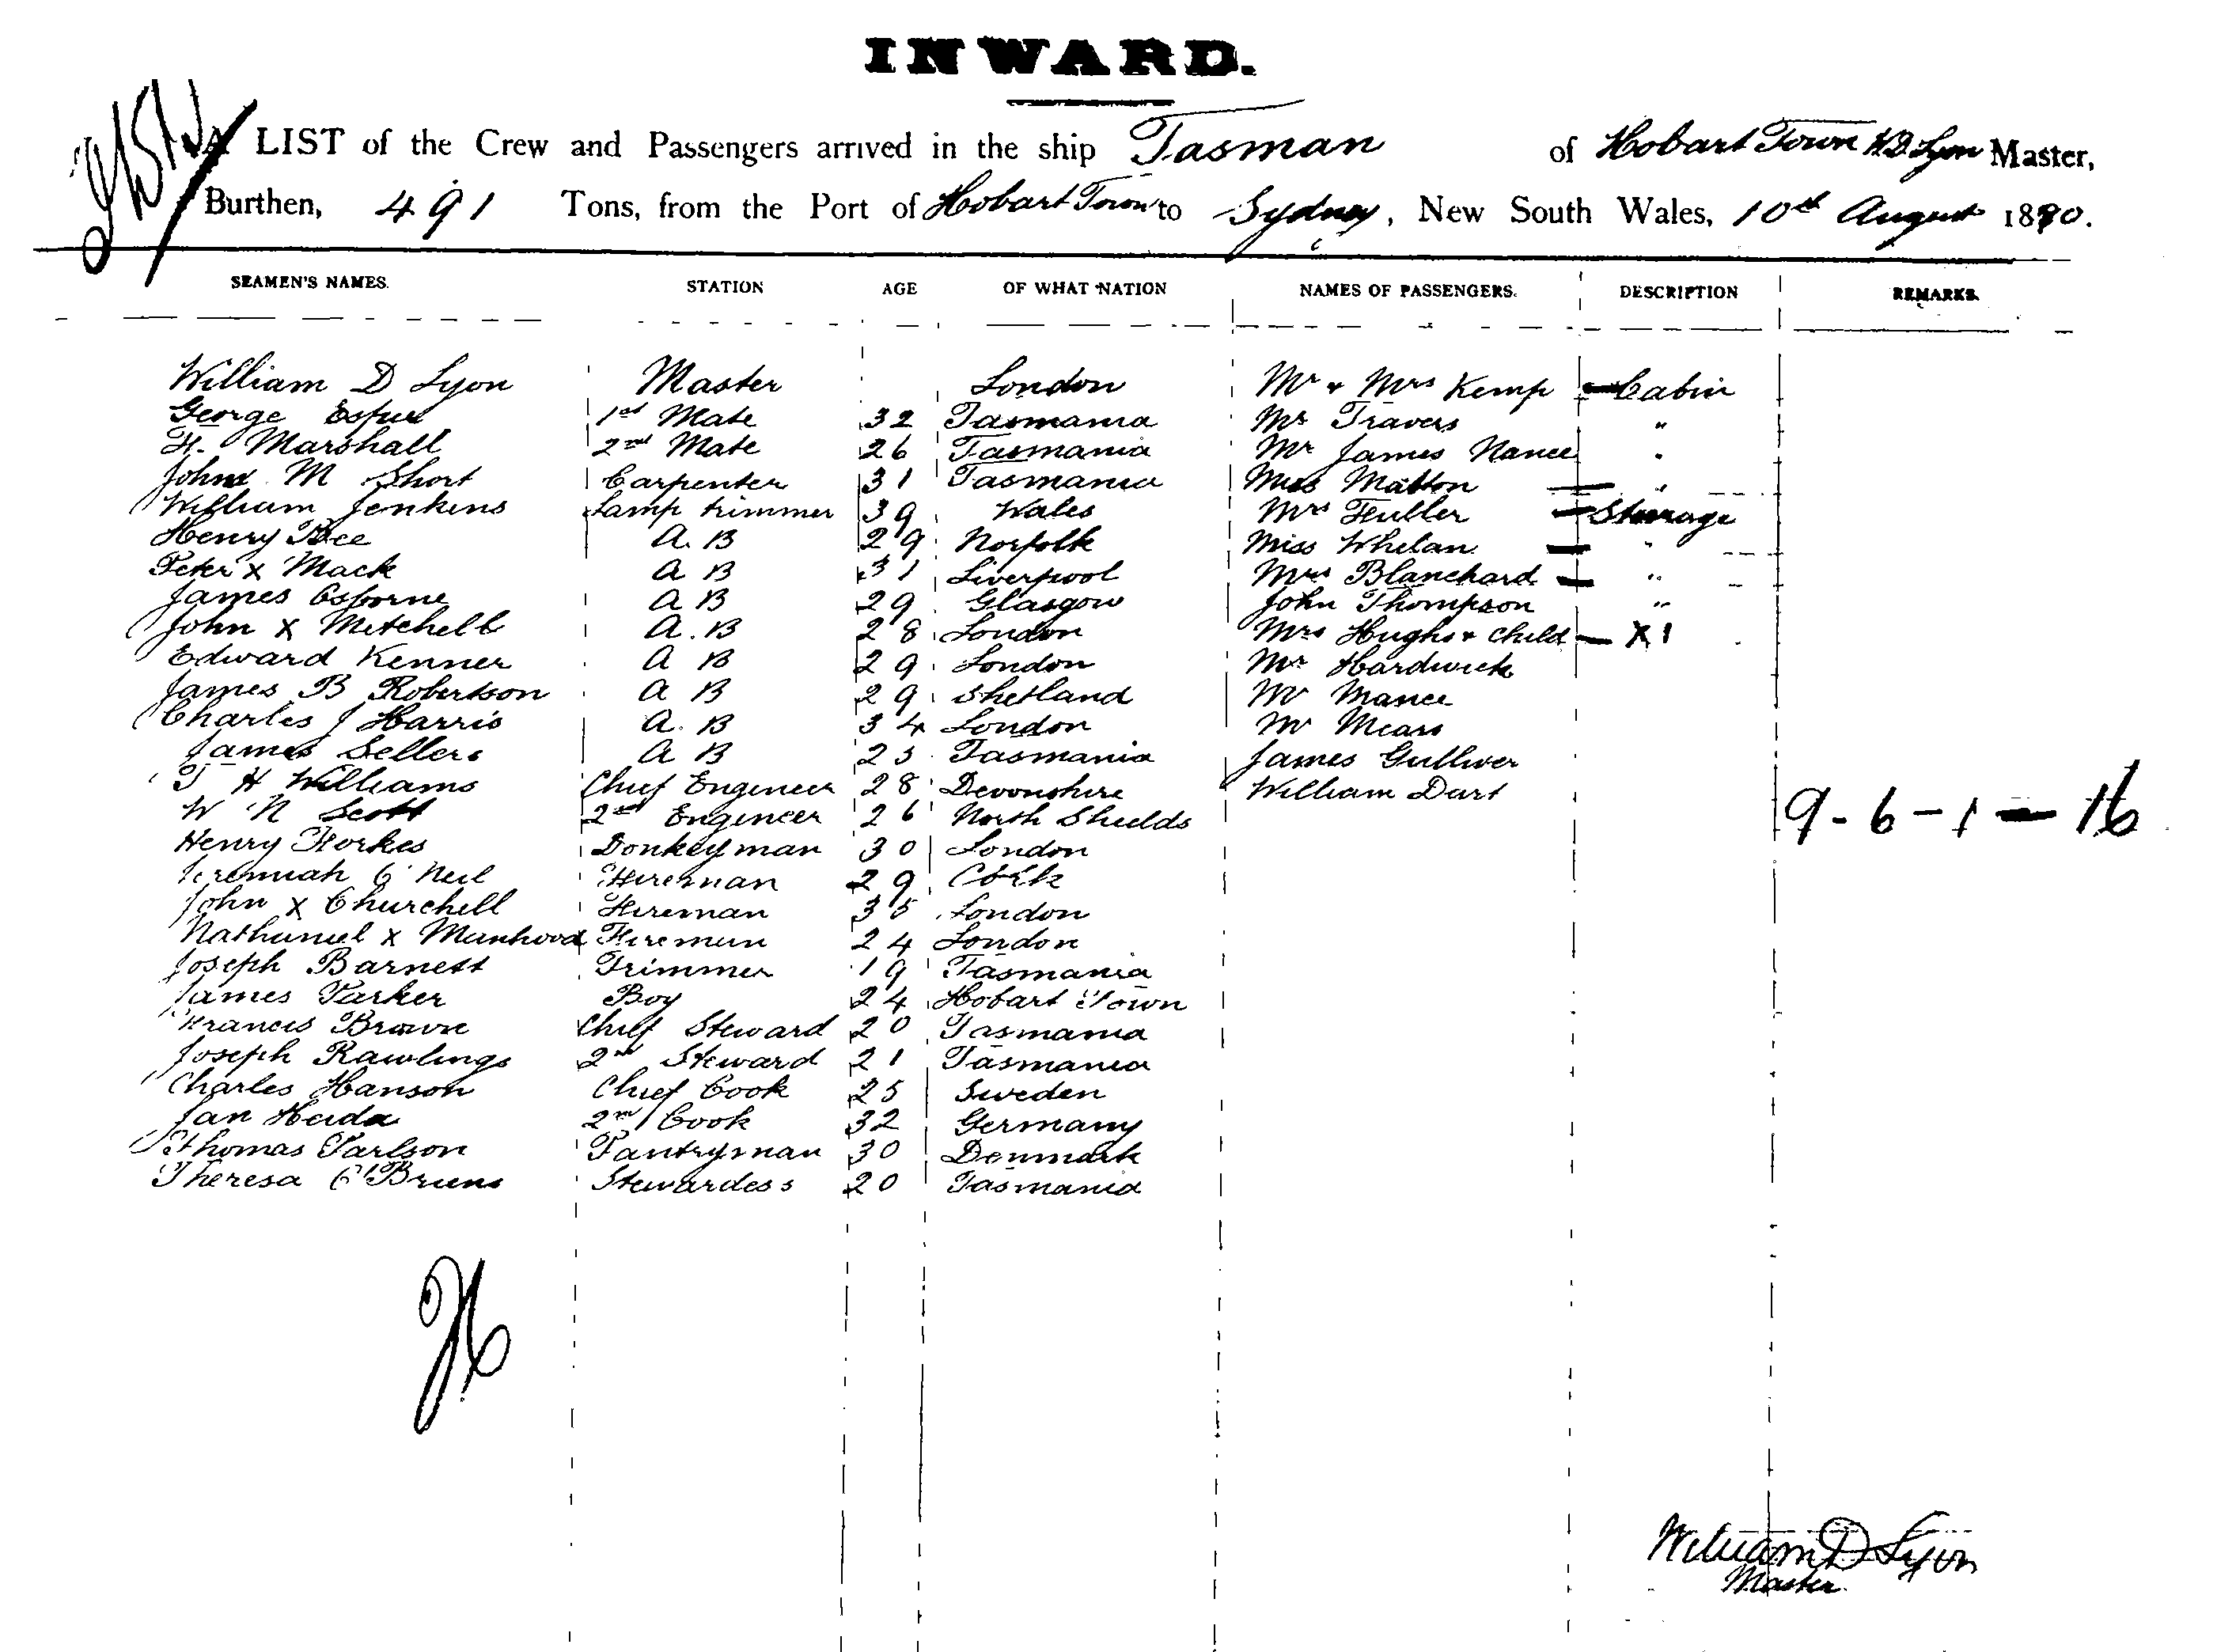 INWARD.
A LIST of the Crew and Passengers arrived in the ship Tasman of Hobart Town W.D. Lyon Master,
Burthen, 491 Tons, from the Port of Hobart Town to Sydney, New South Wales, 10th August 1880.
SEAMEN'S NAMES. STATION AGE OF WHAT NATION NAMES OF PASSENGERS. DESCRIPTION REMARKS.
William D Lyon Master London Mr & Mrs Kemp Cabin
George 1st Mate 32 Tasmania Mr Travers "
H. Marshall 2nd Mate 26 Tasmania Mr James Nance "
John M Short Carpenter 31 Tasmania Miss Matton "
William Jenkins Lamp trimmer 39 Wales Mrs Fuller Steerage
Henry Bee A. B 29 Norfolk Miss Whelan "
Peter x Mack A B 31 Liverpool Mrs Blanchard "
James Osborne A B 29 Glasgow John Thompson "
John x Mitchell A. B 28 London Mrs Hughs & child X1
Edward Kenner A B 29 London Mr Hardwick
James B Robertson A B 29 Shetland Mr Mance
Charles J Harris A. B 34 London Mr Mears
James Sellers A B 25 Tasmania James Gulliver
T H Williams Chief Engineer 28 Devonshire William Dart
W N Scott 2nd Engineer 26 North Shields 9-6-1-16
Henry Donkeyman 30 London
Jeremiah O'Neil Fireman 29 Cork
John x Churchell Fireman 35 London
Nathaniel x Manhood Fireman 24 London
Joseph Barnett Trimmer 19 Tasmania
James Parker Boy 24 Hobart Town
Francis Brown Chief Steward 20 Tasmania
Joseph Rawlings 2nd Steward 21 Tasmania
Charles Hanson Chief Cook 25 Sweden
Jan Heida 2nd Cook 32 Germany
Thomas Parlson Pantryman 30 Denmark
Theresa O'Briens Stewardess 20 Tasmania
William D Lyon
Master